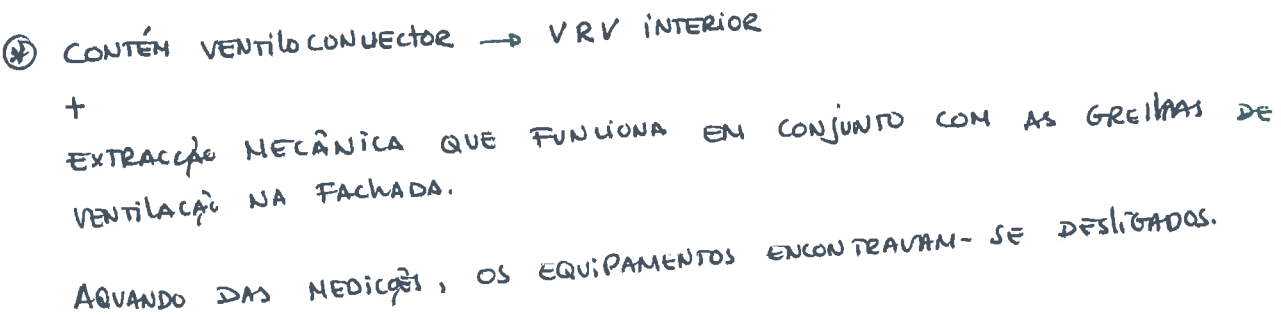 (*) CONTÉM VENTILOCONVECTOR → VRV INTERIOR
+
EXTRACÇÃO MECÂNICA QUE FUNCIONA EM CONJUNTO COM AS GRELHAS DE
VENTILAÇÃO NA FACHADA.
AQUANDO DAS MEDIÇÕES, OS EQUIPAMENTOS ENCONTRAVAM-SE DESLIGADOS.